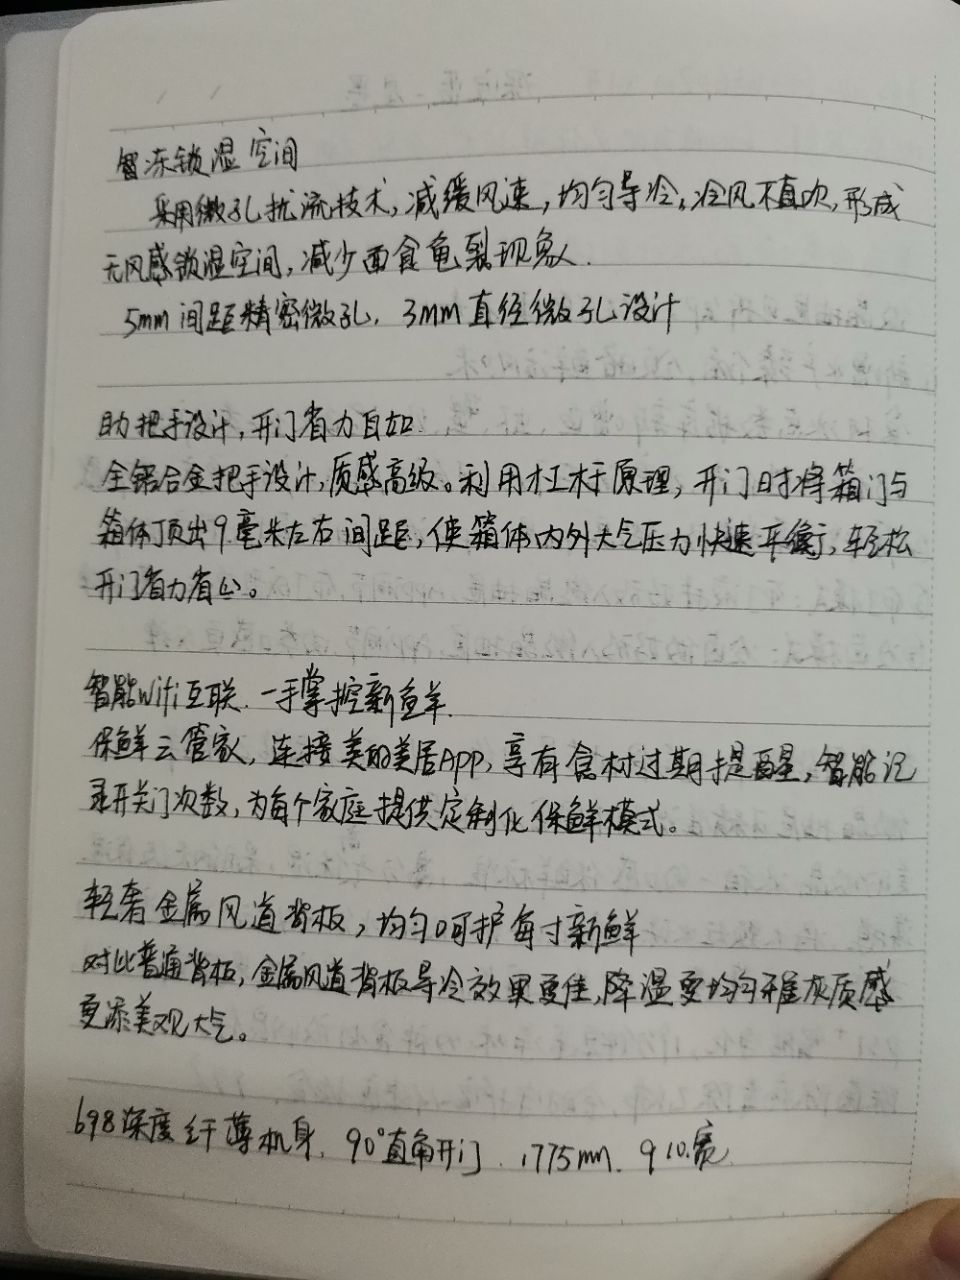 智冻锁湿空间
采用微孔扰流技术,减缓风速,均匀导冷,冷风不直吹,形成
无风感锁湿空间,减少面食龟裂现象.
5mm间距精密微孔. 3mm直径微孔设计
助把手设计,开门省力自如
全铝合金把手设计,质感高级。利用杠杆原理,开门时将箱门与
箱体顶出9毫米左右间距,使箱体内外大气压力快速平衡,轻松
开门省力省心。
智能wifi互联.一手掌控新鱼羊.
保鲜云管家,连接美的美居App,享有食材过期提醒,智能记
录开关门次数,为每个家庭提供定制化保鲜模式。
轻奢金属风道背板,均匀呵护每寸新鲜
对比普通背板,金属风道背板导冷效果更佳,降温更均匀雅灰质感
更添美观大气。
698深度纤薄机身. 90°直角开门. 1775mm. 910.宽